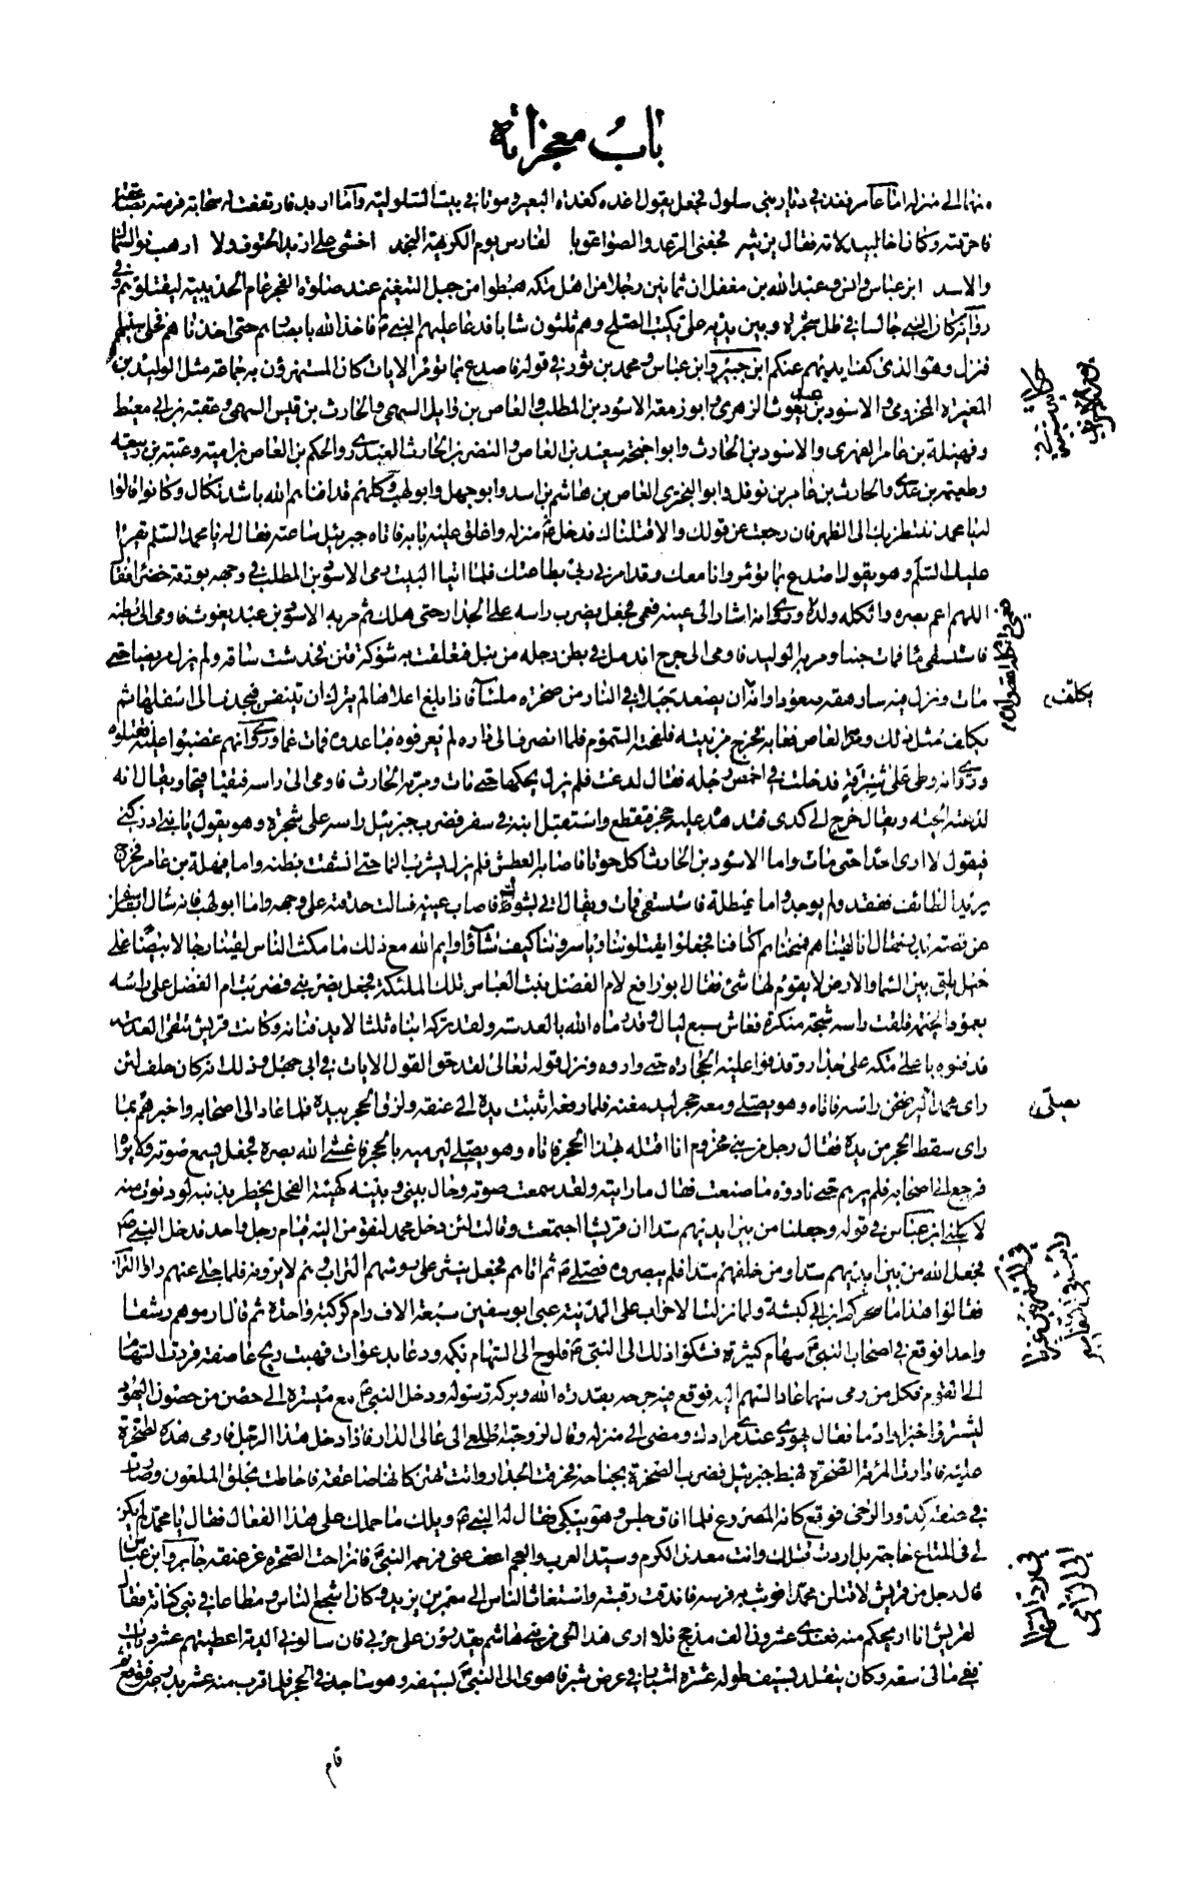 باب معجزاته
منها الى منزله اما عامر فغد في ديار بني سلول فجعل يقول اغدة كغدة البعير وموتا في بيت السلولية واما اربد فارتفعت له سحابة فرمته بصاعقة
فاحرقته وكان اخا لبيد لامه فقال يرثيه فجعني الرعد والصواعق با لفارس يوم الكريهة النجد اخشى على اربد الحتوف ولا ارهب نوء السماك
والاسد ابن عباس وانس وعبد الله بن مغفل ان ثمانين رجلا من اهل مكة هبطوا من جبل التنعيم عند صلوة الفجر عام الحديبية ليقتلوهم وفي
رواية كان النبي جالسا في ظل شجرة وبين يديه علي يكتب الصلح وهم ثلثون شابا فدعا عليهم النبي فاخذ الله بابصارهم حتى اخذناهم فخلى سبيلهم
فنزل وهو الذي كف ايديهم عنكم ابن جبير وابن عباس ومحمد بن ثور في قوله فاصدع بما تؤمر الايات كان المستهزؤن به جماعة مثل الوليد بن
المغيرة المخزومي والاسود بن عبد يغوث الزهري وابو زمعة الاسود بن المطلب والعاص بن وايل السهمي والحارث بن قيس السهمي وعقبة بن ابي معيط
وفهيلة بن عامر الفهري والاسود بن الحارث وابو احيحة سعيد بن العاص والنضر بن الحارث العبدري والحكم بن العاص بن امية وعتبة بن ربيعة
وطعيمة بن عدي والحارث بن عامر بن نوفل وابو البختري العاص بن هاشم بن اسد وابو جهل وابو لهب وكلهم قد افناهم الله باشد نكال وكانوا قالوا
له يا محمد ننتظر بك الى الظهر فان رجعت عن قولك والا قتلناك فدخل منزله واغلق عليه بابه فاتاه جبرئيل ساعته فقال له يا محمد السلم يقرأ
عليك السلم وهو يقول اصدع بما تؤمر وانا معك وقد امرني ربي بطاعتك فلما اتيا البيت رمى الاسود بن المطلب في وجهه بورقة خضراء فقال
اللهم اعم بصره واثكله ولده وروي انه اشار الى عينه فعمي فجعل يضرب راسه على الجدار حتى هلك ثم مر به الاسود بن عبد يغوث فاومى الى بطنه
فاستسقى ماء فمات حبنا ومر به الوليد فاومى الى جرح اندمل في بطن رجله من نبل فتعلقت به شوكة فنن فخدشت ساقه ولم يزل مريضا حتى
مات ونزل فيه سارهقه صعودا وانه ان يصعد جبلا في النار من صخرة ملساء فاذا بلغ اعلاها لم يترك ان يتنفس فيجذب الى اسفلها ثم
يكلف مثل ذلك ومر العاص فعابه فخرج من بيته فلفحته السموم فلما انصرف الى داره لم يعرفوه فباعدوه فمات غما وروي انهم غضبوا عليه فقتلوه
وروي انه وطئ على شبرقة فدخلت في اخمص رجله فقال لدغت فلم يزل يحكها حتى مات ومر به الحارث فاومى الى راسه فتقيأ قيحا ويقال انه
لدغته الحية ويقال خرج الى كدى فتدهده عليه حجر فتقطع واستقبل ابنه في سفر فضرب جبرئيل راسه على شجرة وهو يقول يا بني ادركني
فيقول لا ارى احدا حتى مات واما الاسود بن الحارث اكل حوتا فاصابه العطش فلم يزل يشرب الماء حتى انشقت بطنه واما فهيلة بن عامر فخرج
يريد الطائف ففقد ولم يوجد واما عيطلة فاستسقى فمات ويقال اتي بشوك فاصاب عينيه فسالت حدقته على وجهه واما ابو لهب فانه سال ابا سفيان
عن قصة بدر فقال انا لقيناهم فمنحناهم اكتافنا فجعلوا يقتلوننا وياسروننا كيف شاؤا وايم الله مع ذلك ما مكثت الناس لقينا رجالا بيضا على
خيل بلق بين السماء والارض لا يقوم لها شئ فقال ابو رافع لام الفضل بنت العباس تلك الملئكة فجعل يضربني فضربت ام الفضل على راسه
بعمود الخيمة فلقت راسه شجة منكرة فعاش سبع ليال وقد رماه الله بالعدسة ولقد تركه ابناه ثلثا لا يدفنانه وكانت قريش تتقي العدسة
فدفنوه باعلى مكة على جدار وقذفوا عليه الحجارة حتى واروه ونزل قوله تعالى لقد حق القول الايات في ابي جهل وذلك انه كان حلف لئن
راى محمدا يصلي ليرضخن راسه فاتاه وهو يصلي ومعه حجر ليدمغه فلما رفعه اثبتت يده الى عنقه ولزق الحجر بيده فلما عاد الى اصحابه واخبرهم بما
راى سقط الحجر من يده فقال رجل من بني مخزوم انا اقتله بهذا الحجر فاتاه وهو يصلي ليرميه بالحجر فاغشى الله بصره فجعل يسمع صوته ولا يراه
فرجع الى اصحابه فلم يرهم حتى نادوه ما صنعت فقال ما رايته ولقد سمعت صوته وحال بيني وبينه كهيئة الفحل يخطر بذنبه لو دنوت منه
لاكلني ابن عباس في قوله وجعلنا من بين ايديهم سدا ان قريشا اجتمعت وقالت لئن دخل محمد لنقومن اليه قيام رجل واحد فدخل النبي
فجعل الله من بين ايديهم سدا ومن خلفهم سدا فلم يبصروه فصلى ثم اتاهم فجعل ينثر على رؤسهم التراب وهم لا يرونه فلما جلى عنهم راوا التراب
فقالوا هذا ما سحركم ابن ابي كبشة ولما نزلت الاحزاب على المدينة عبى ابو سفين سبعة الاف رام كوكبة واحدة ثم قال ارموهم رشقا
واحدا فوقع في اصحاب النبي سهام كثيرة فشكوا ذلك الى النبي فلوح الى السهام بكمه ودعا بدعوات فهبت ريح عاصفة فردت السهام
الى القوم فكل من رمى سهما عاد السهم اليه فوقع فيه جرحه بقدرة الله وبركة رسوله ودخل النبي مع ميسرة الى حصن من حصون اليهود
ليشتروا خبزا وادما فقال يهودي عندي مرادك ومضى الى منزله وقال لزوجته اطلعي الى عالي الدار فاذا دخل هذا الرجل فارمي هذه الصخرة
عليه فادارت المرءة الصخرة فهبط جبرئيل فضرب الصخرة بجناحه فخرقت الجدار واتت تهتز كانها صاعقة فاحاطت بحلق الملعون وصارت
في عنقه كدور الرحى فوقع كانه المصروع فلما افاق جلس وهو يبكي فقال له النبي ويلك ما حملك على هذا الفعال فقال يا محمد لم يكن
لي في المتاع حاجة بل اردت قتلك وانت معدن الكرم وسيد العرب والعجم اعف عني فرحمه النبي فانزاحت الصخرة عن عنقه جابر وابن عباس
قال رجل من قريش لاقتلن محمدا فوثب به فرسه فاندقت رقبته واستغاث الناس الى معمر بن يزيد وكان اشجع الناس ومطاعا في بني كنانة فقال
لقريش انا اريحكم منه فعندي عشرون الف مدجج فلا ارى هذا الحي من بني هاشم يقدرون على حربي فان سالوني الدية اعطيتهم عشر ديات
ففي مالي سعة وكان يتقلد بسيف طوله عشرة اشبار في عرض شبر فاهوى الى النبي بسيفه وهو ساجد في الحجر فلما قرب منه عثر بدرعه فوقع
يكلف
يصلي
قام